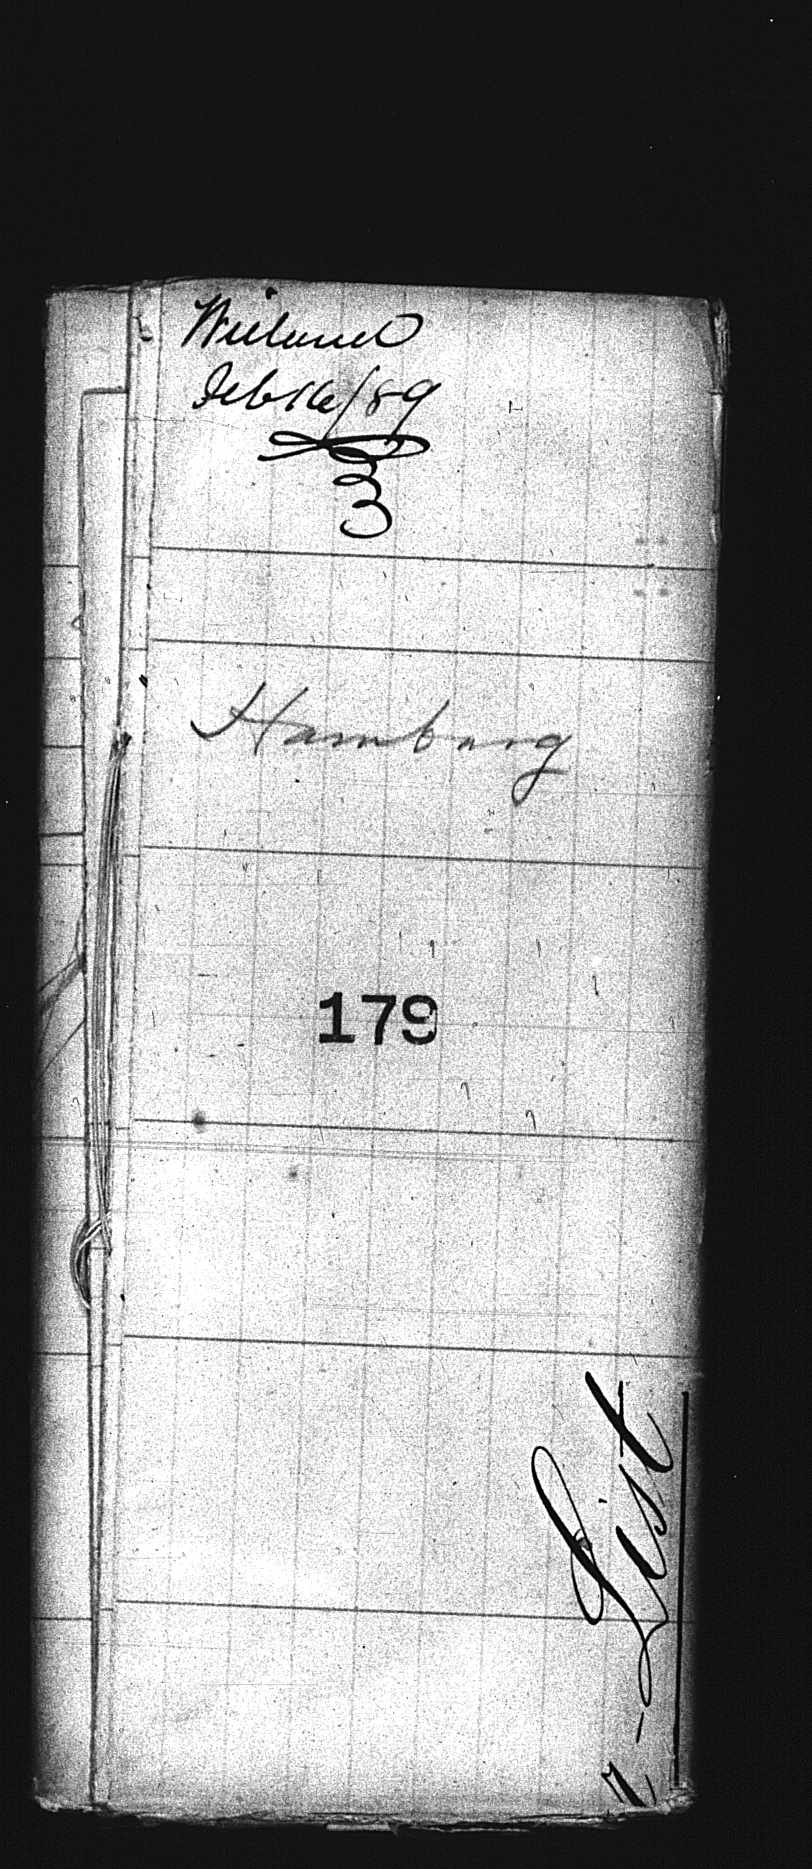 Wieland
Feb 16/89
3
Hamburg
179
List